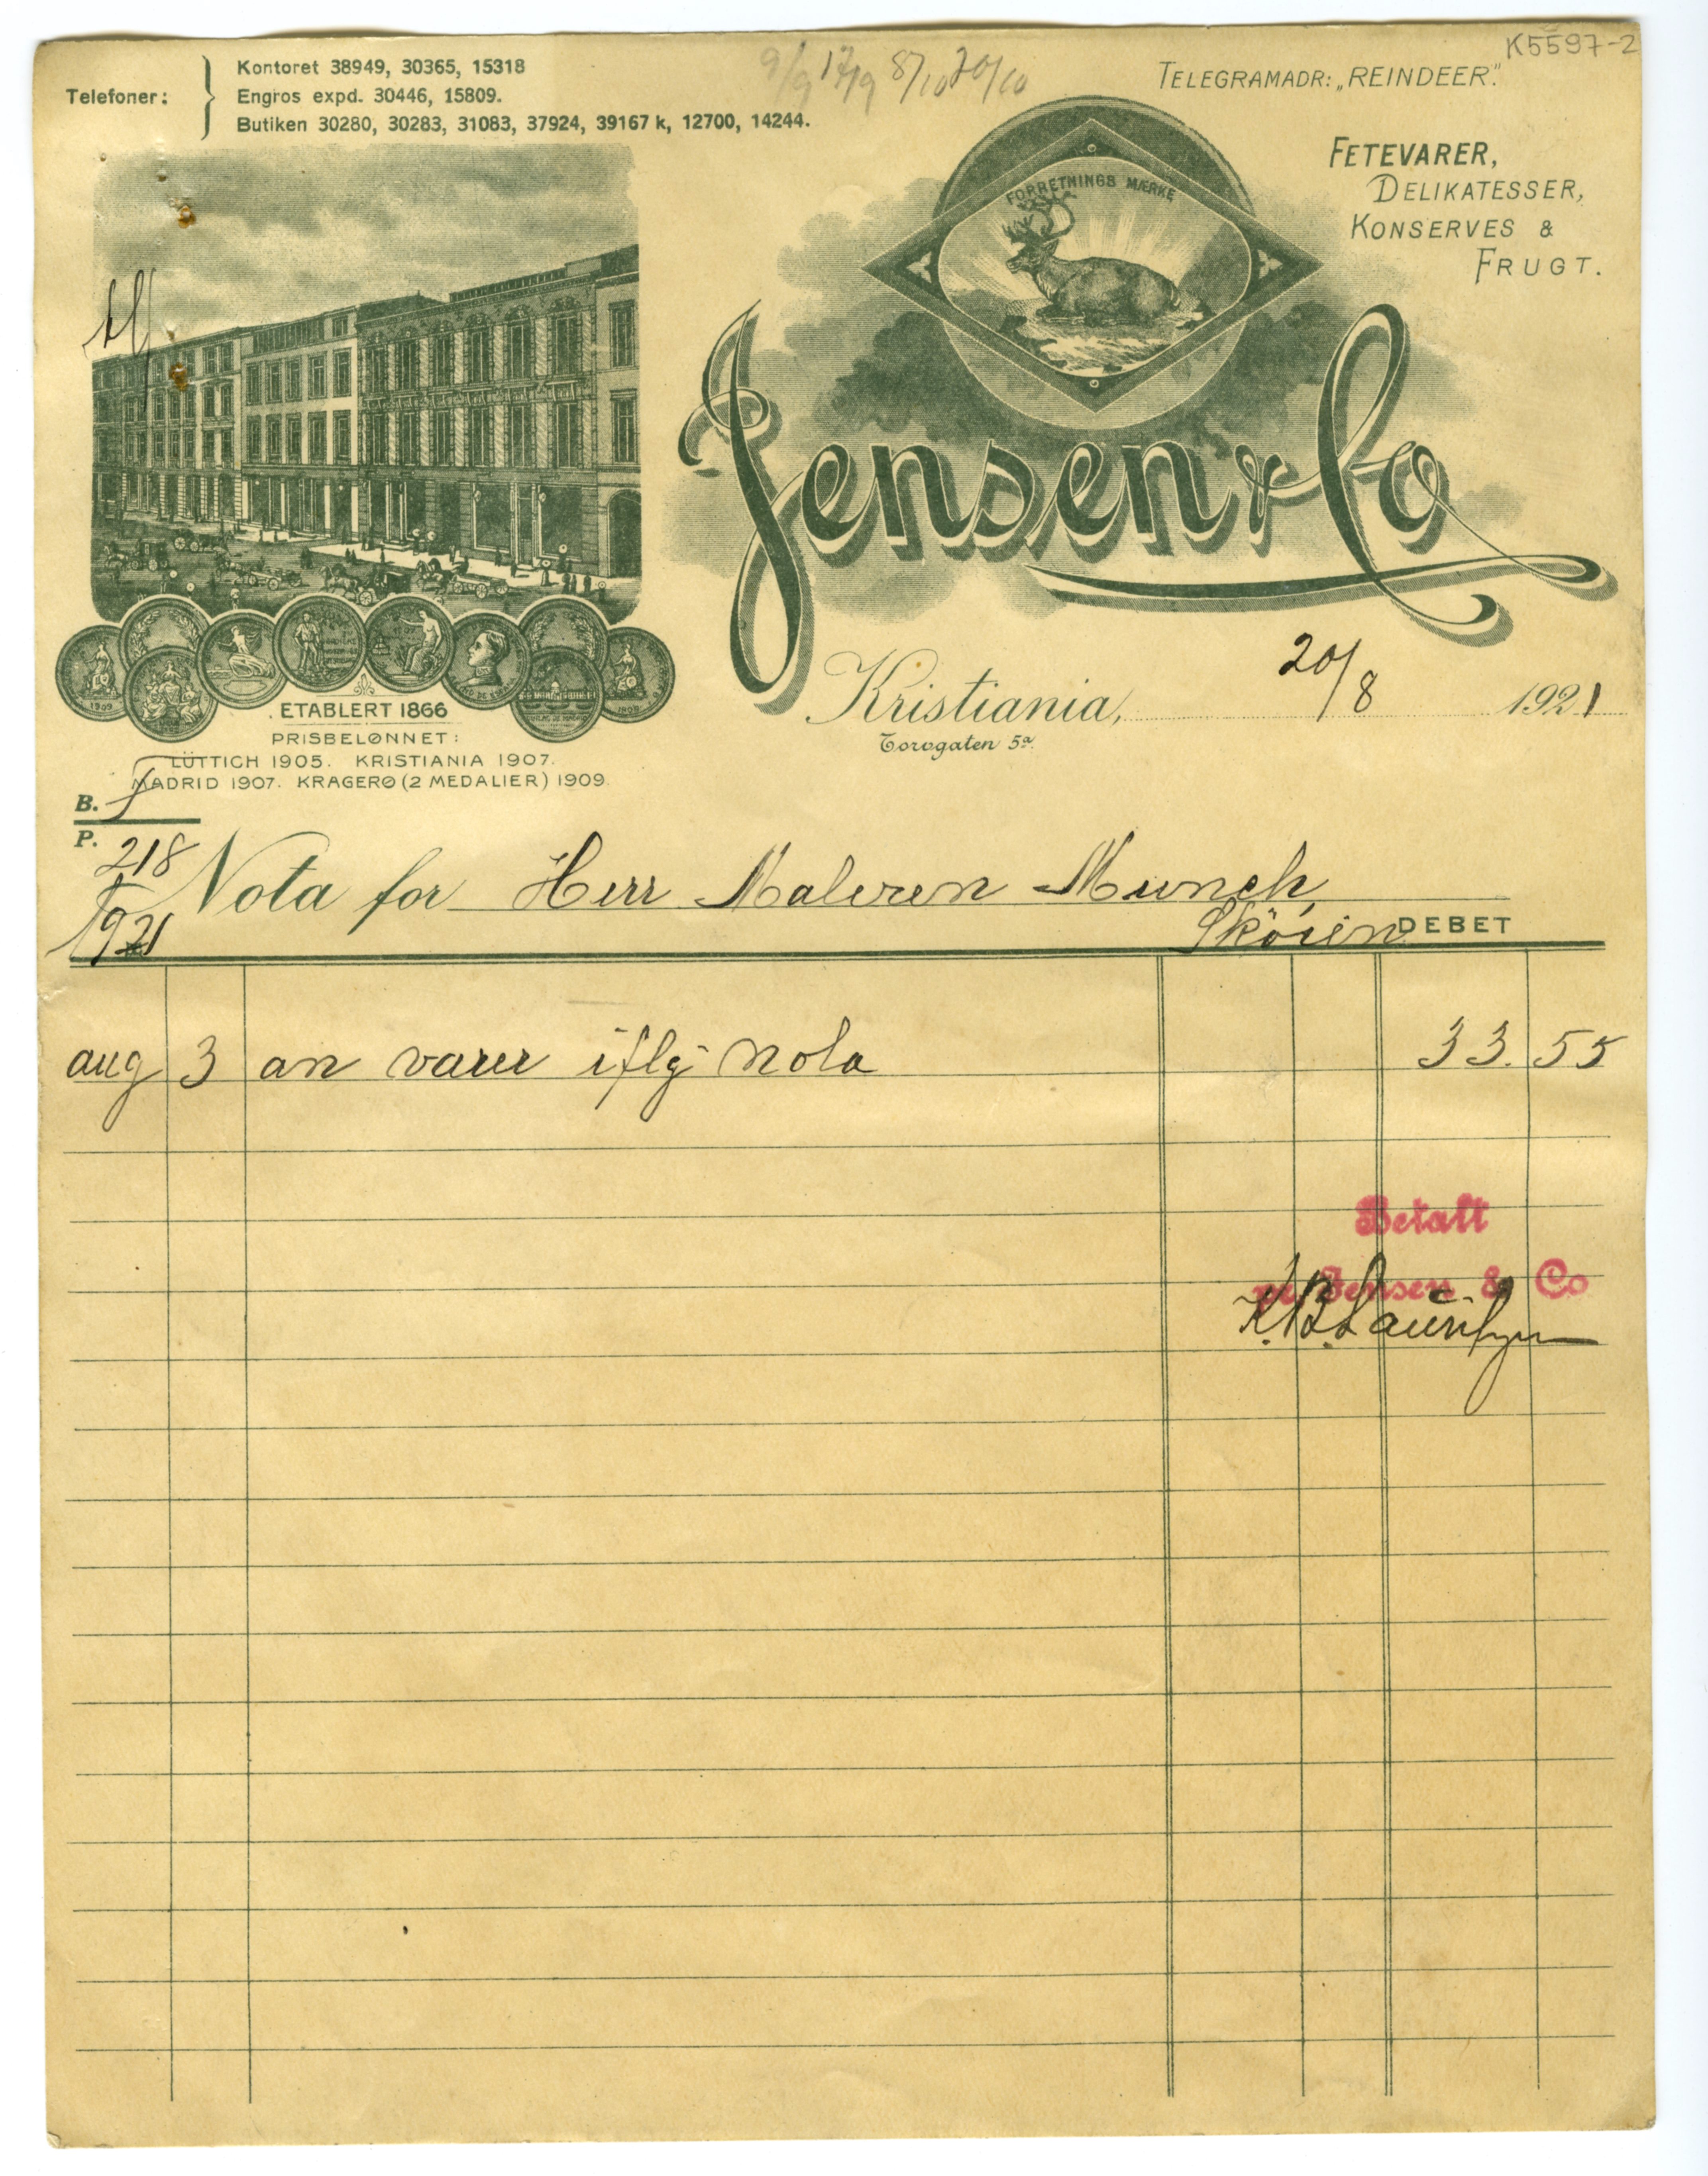 K5597-2
9/9 17/9 8/10 20/10
Telefoner:
Kontoret 38949, 30365, 15318
Engros expd. 30446, 15809.
Butiken 30280, 30283, 31083, 37924, 39167 k, 12700, 14244.
TELEGRAMADR: „REINDEER."
FETEVARER,
DELIKATESSER,
KONSERVES &
FRUGT.
FORRETNINGS MÆRKE
Jensen & Co
Kristiania, 20/8 1921
Torvgaten 5a.
ETABLERT 1866
PRISBELØNNET:
LÜTTICH 1905. KRISTIANIA 1907.
MADRID 1907. KRAGERØ (2 MEDALIER) 1909.
B.
P. 218
Nota for Herr Maleren Munch,
Sköien
DEBET
1921
aug 3 an varer iflg nota 33.55
Betalt
pr Jensen & Co